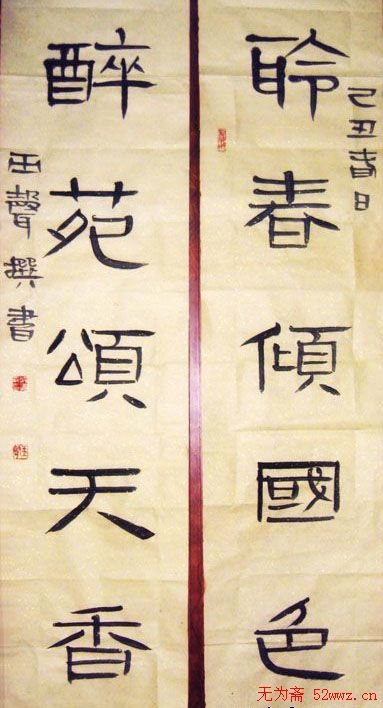 己丑春日
聆春傾國色
醉苑頌天香
聲撰書
无为斋 52wwz.cn